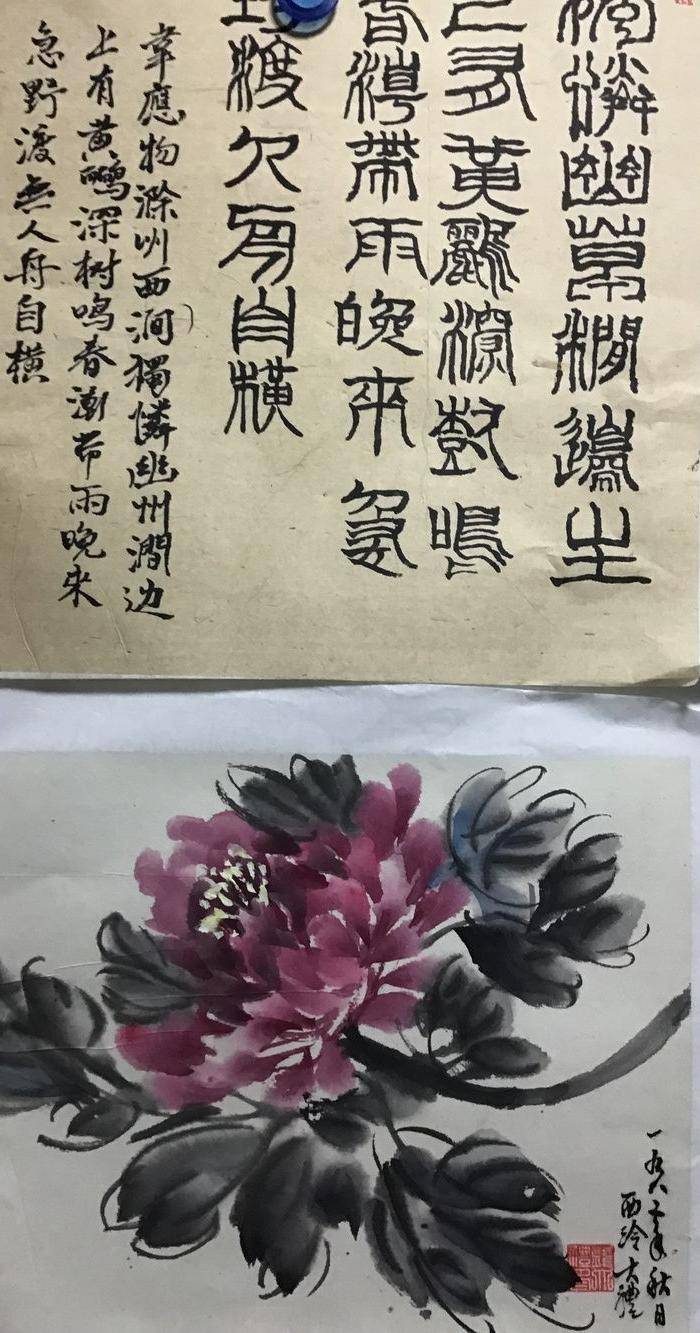 憐幽草澗邊生
有黃鸝深樹鳴
春潮帶雨晚來急
渡舟自橫
韋應物滁州西澗獨憐幽州澗边
上有黄鸝深树鳴春潮带雨晚来
急野渡無人舟自橫
一九八二年秋日
西泠大禮